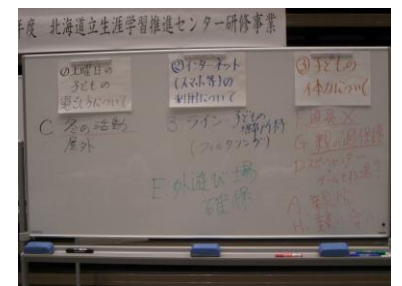 年度 北海道立生涯学習推進センター研修事業
①土曜日の
子どもの
過ごし方について
②インターネット
(スマホ等)の
利用について
③子どもの
体力について
C 冬の活動
屋外
B.ライン 子どもの
(フィルタリング)
E.外遊び場
確保
F 道具 X
G 親の過保護
D スポーツセンター
A
H